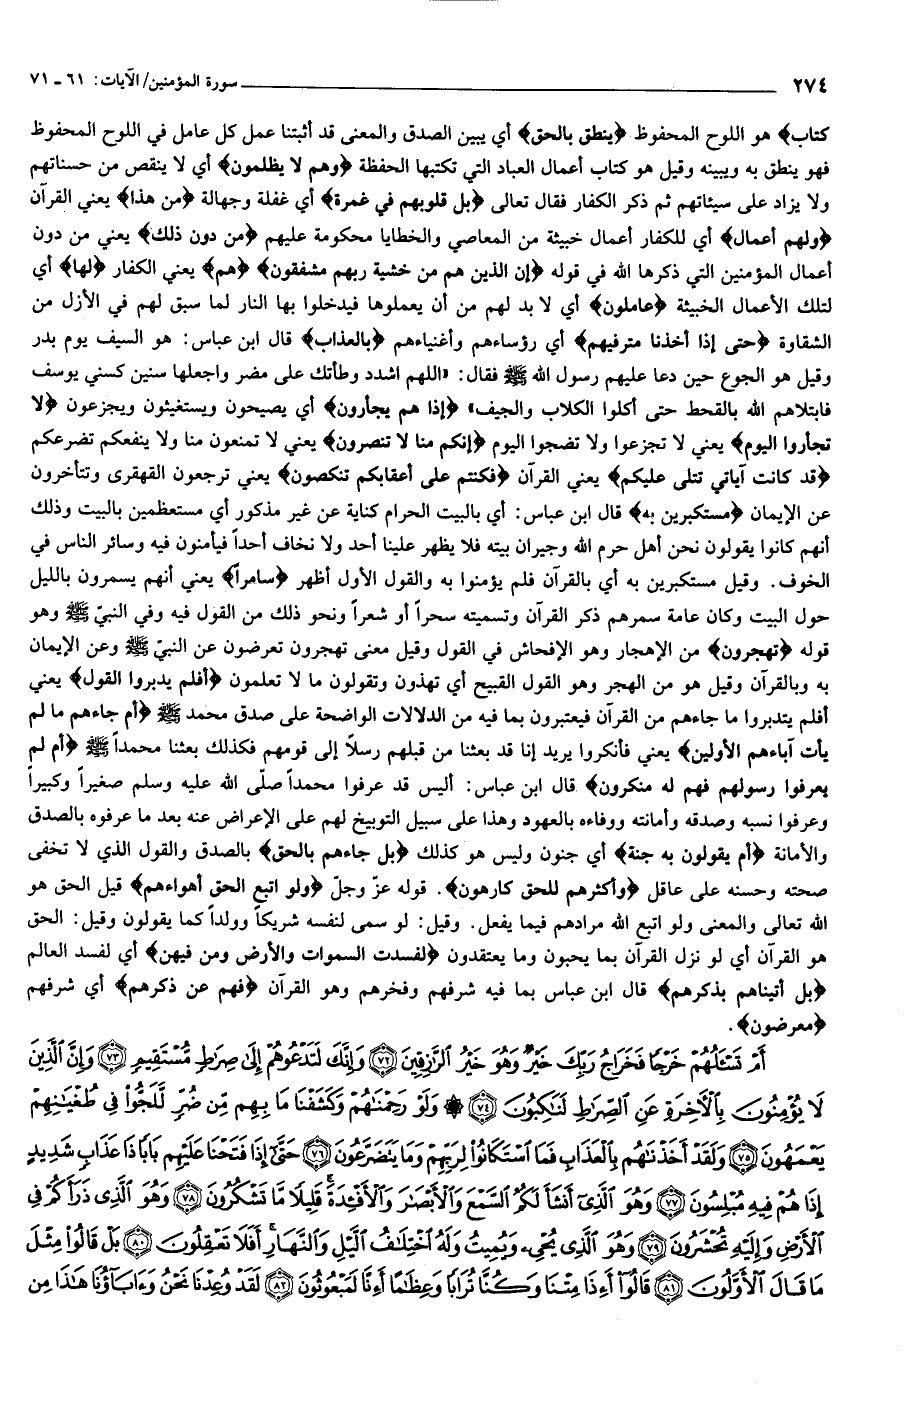 ٢٧٤ سورة المؤمنين/الآيات: ٦١ ـ ٧١
كتاب﴾ هو اللوح المحفوظ ﴿ينطق بالحق﴾ أي يبين الصدق والمعنى قد أثبتنا عمل كل عامل في اللوح المحفوظ
فهو ينطق به ويبينه وقيل هو كتاب أعمال العباد التي تكتبها الحفظة ﴿وهم لا يظلمون﴾ أي لا ينقص من حسناتهم
ولا يزاد على سيئاتهم ثم ذكر الكفار فقال تعالى ﴿بل قلوبهم في غمرة﴾ أي غفلة وجهالة ﴿من هذا﴾ يعني القرآن
﴿ولهم أعمال﴾ أي للكفار أعمال خبيثة من المعاصي والخطايا محكومة عليهم ﴿من دون ذلك﴾ يعني من دون
أعمال المؤمنين التي ذكرها الله في قوله ﴿إن الذين هم من خشية ربهم مشفقون﴾ ﴿هم﴾ يعني الكفار ﴿لها﴾ أي
لتلك الأعمال الخبيثة ﴿عاملون﴾ أي لا بد لهم من أن يعملوها فيدخلوا بها النار لما سبق لهم في الأزل من
الشقاوة ﴿حتى إذا أخذنا مترفيهم﴾ أي رؤساءهم وأغنياءهم ﴿بالعذاب﴾ قال ابن عباس: هو السيف يوم بدر
وقيل هو الجوع حين دعا عليهم رسول الله ﷺ فقال: «اللهم اشدد وطأتك على مضر واجعلها سنين كسني يوسف
فابتلاهم الله بالقحط حتى أكلوا الكلاب والجيف» ﴿إذا هم يجأرون﴾ أي يصيحون ويستغيثون ويجزعون ﴿لا
تجأروا اليوم﴾ يعني لا تجزعوا ولا تضجوا اليوم ﴿إنكم منا لا تنصرون﴾ يعني لا تمنعون منا ولا ينفعكم تضرعكم
﴿قد كانت آياتي تتلى عليكم﴾ يعني القرآن ﴿فكنتم على أعقابكم تنكصون﴾ يعني ترجعون القهقرى وتتأخرون
عن الإيمان ﴿مستكبرين به﴾ قال ابن عباس: أي بالبيت الحرام كناية عن غير مذكور أي مستعظمين بالبيت وذلك
أنهم كانوا يقولون نحن أهل حرم الله وجيران بيته فلا يظهر علينا أحد ولا نخاف أحداً فيأمنون فيه وسائر الناس في
الخوف. وقيل مستكبرين به أي بالقرآن فلم يؤمنوا به والقول الأول أظهر ﴿سامراً﴾ يعني أنهم يسمرون بالليل
حول البيت وكان عامة سمرهم ذكر القرآن وتسميته سحراً أو شعراً ونحو ذلك من القول فيه وفي النبيّ ﷺ وهو
قوله ﴿تهجرون﴾ من الإهجار وهو الإفحاش في القول وقيل معنى تهجرون تعرضون عن النبيّ ﷺ وعن الإيمان
به وبالقرآن وقيل هو من الهجر وهو القول القبيح أي تهذون وتقولون ما لا تعلمون ﴿أفلم يدبروا القول﴾ يعني
أفلم يتدبروا ما جاءهم من القرآن فيعتبرون بما فيه من الدلالات الواضحة على صدق محمد ﷺ ﴿أم جاءهم ما لم
يأت آباءهم الأولين﴾ يعني فأنكروا يريد إنا قد بعثنا من قبلهم رسلاً إلى قومهم فكذلك بعثنا محمداً ﷺ ﴿أم لم
يعرفوا رسولهم فهم له منكرون﴾ قال ابن عباس: أليس قد عرفوا محمداً صلّى الله عليه وسلم صغيراً وكبيراً
وعرفوا نسبه وصدقه وأمانته ووفاءه بالعهود وهذا على سبيل التوبيخ لهم على الإعراض عنه بعد ما عرفوه بالصدق
والأمانة ﴿أم يقولون به جنة﴾ أي جنون وليس هو كذلك ﴿بل جاءهم بالحق﴾ بالصدق والقول الذي لا تخفى
صحته وحسنه على عاقل ﴿وأكثرهم للحق كارهون﴾. قوله عزّ وجلّ ﴿ولو اتبع الحق أهواءهم﴾ قيل الحق هو
الله تعالى والمعنى ولو اتبع الله مرادهم فيما يفعل. وقيل: لو سمى لنفسه شريكاً وولداً كما يقولون وقيل: الحق
هو القرآن أي لو نزل القرآن بما يحبون وما يعتقدون ﴿لفسدت السموات والأرض ومن فيهن﴾ أي لفسد العالم
﴿بل أتيناهم بذكرهم﴾ قال ابن عباس بما فيه شرفهم وفخرهم وهو القرآن ﴿فهم عن ذكرهم﴾ أي شرفهم
﴿معرضون﴾.
أَمْ تَسْـَٔلُهُمْ خَرْجًا فَخَرَاجُ رَبِّكَ خَيْرٌ وَهُوَ خَيْرُ الرَّٰزِقِينَ ۝٧٢ وَإِنَّكَ لَتَدْعُوهُمْ إِلَىٰ صِرَٰطٍ مُّسْتَقِيمٍ ۝٧٣ وَإِنَّ الَّذِينَ
لَا يُؤْمِنُونَ بِالْآخِرَةِ عَنِ الصِّرَٰطِ لَنَٰكِبُونَ ۝٧٤ ۞ وَلَوْ رَحِمْنَٰهُمْ وَكَشَفْنَا مَا بِهِم مِّن ضُرٍّ لَّلَجُّوا۟ فِي طُغْيَٰنِهِمْ
يَعْمَهُونَ ۝٧٥ وَلَقَدْ أَخَذْنَٰهُم بِالْعَذَابِ فَمَا اسْتَكَانُوا۟ لِرَبِّهِمْ وَمَا يَتَضَرَّعُونَ ۝٧٦ حَتَّىٰٓ إِذَا فَتَحْنَا عَلَيْهِم بَابًا ذَا عَذَابٍ شَدِيدٍ
إِذَا هُمْ فِيهِ مُبْلِسُونَ ۝٧٧ وَهُوَ الَّذِىٓ أَنشَأَ لَكُمُ السَّمْعَ وَالْأَبْصَٰرَ وَالْأَفْـِٔدَةَ ۚ قَلِيلًا مَّا تَشْكُرُونَ ۝٧٨ وَهُوَ الَّذِى ذَرَأَكُمْ فِى
الْأَرْضِ وَإِلَيْهِ تُحْشَرُونَ ۝٧٩ وَهُوَ الَّذِى يُحْىِۦ وَيُمِيتُ وَلَهُ اخْتِلَٰفُ الَّيْلِ وَالنَّهَارِ ۚ أَفَلَا تَعْقِلُونَ ۝٨٠ بَلْ قَالُوا۟ مِثْلَ
مَا قَالَ الْأَوَّلُونَ ۝٨١ قَالُوٓا۟ أَءِذَا مِتْنَا وَكُنَّا تُرَابًا وَعِظَٰمًا أَءِنَّا لَمَبْعُوثُونَ ۝٨٢ لَقَدْ وُعِدْنَا نَحْنُ وَءَابَآؤُنَا هَٰذَا مِن